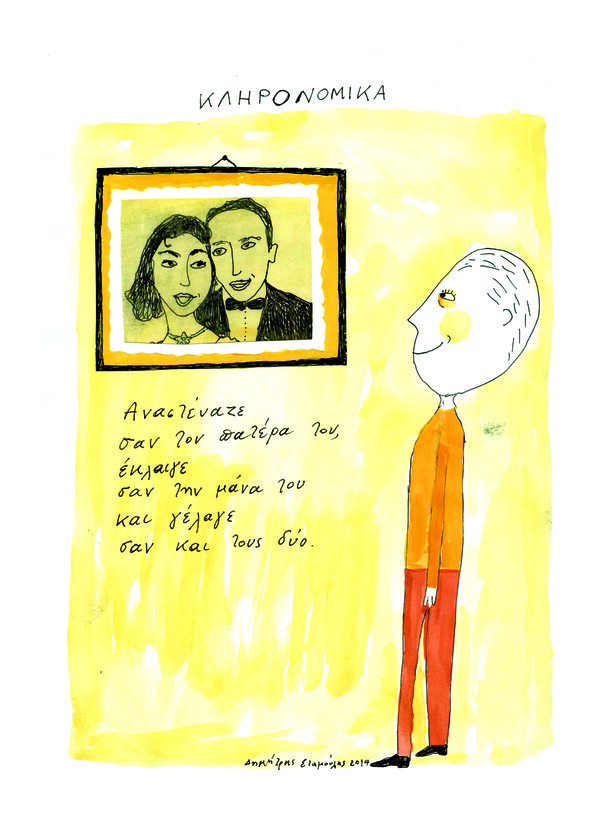 ΚΛΗΡΟΝΟΜΙΚΑ
Αναστέναζε
σαν τον πατέρα του,
έκλαιγε
σαν την μάνα του
και γέλαγε
σαν και τους δύο.
Δημήτρης Σταμούλης 2019